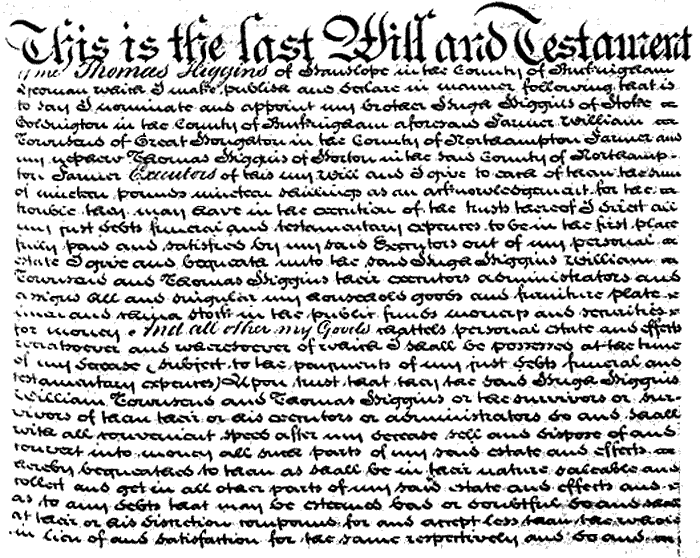 This is the last Will and Testament
of me Thomas Higgins of Hanslope in the County of Buckingham
Yeoman which I make publish and declare in manner following that is
to say I nominate and appoint my brother Hugh Higgins of Stoke
Goldington in the County of Buckingham aforesaid Farmer William
Townsend of Great Houghton in the County of Northampton Farmer and
my nephew Thomas Higgins of Horton in the said County of Northamp-
ton Farmer Executors of this my Will and I give to each of them the sum
of nineteen pounds nineteen shillings as an acknowledgement for the
trouble they may have in the execution of the trusts thereof I direct all
my just debts funeral and testamentary expences to be in the first place
fully paid and satisfied by my said Executors out of my personal
estate I give and bequeath unto the said Hugh Higgins William
Townsend and Thomas Higgins their executors administrators and
assigns all and singular my household goods and furniture plate
linen and china stock in the public funds moneys and securities
for money And all other my Goods chattels personal estate and effects
whatsoever and wheresoever of which I shall be possessed at the time
of my decease (subject to the payments of my just debts funeral and
testamentary expences) Upon trust that they the said Hugh Higgins
William Townsend and Thomas Higgins or the survivors or sur-
vivors of them their or his executors or administrators do and shall
with all convenient speed after my decease sell and dispose of and
convert into money all such parts of my said estate and effects
hereby bequeathed to them as shall be in their nature saleable and
collect and get in all other parts of my said estate and effects and
as to any debts that may be esteemed bad or doubtful do and shall
at their or his discretion compound for and accept less than the whole
in lieu of and satisfaction for the same respectively and do and